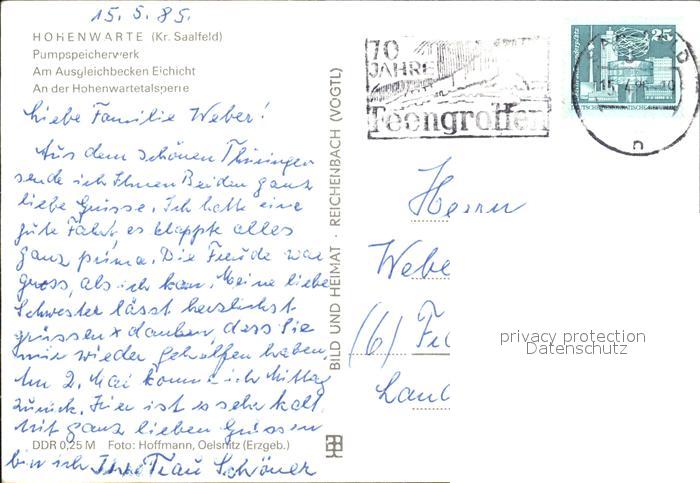 15. 5. 85.
HOHENWARTE (Kr. Saalfeld)
Pumpspeicherwerk
Am Ausgleichbecken Eichicht
An der Hohenwartetalsperre
Liebe Familie Weber!
Aus dem schönen Thüringen
sende ich Ihnen Beiden ganz
liebe Grüsse. Ich hatte eine
gute Fahrt es klappte alles
ganz prima. Die Freude war
gross, als ich kam. Meine liebe
Schwester lässt herzlichst
grüssen + danken, dass Sie
mir wieder geholfen haben.
Am 2. Mai komme ich Mittag
zurück. Hier ist es sehr kalt.
Mit ganz lieben Grüssen
bin ich Ihre Frau Schöner
DDR 0,25 M Foto: Hoffmann, Oelsnitz (Erzgeb.)
BILD UND HEIMAT · REICHENBACH (VOGTL)
70
JAHRE
Feengrotten
25
n
Herrn
Webe
(6)
Land
privacy protection
Datenschutz